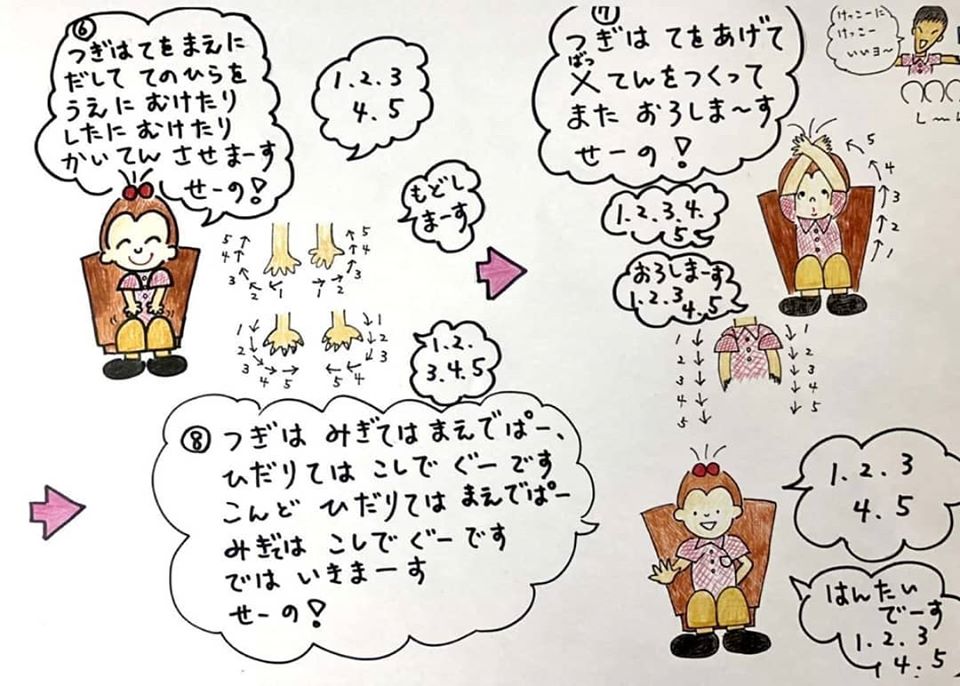 ⑥
つぎは てをまえに
だして てのひらを
うえに むけたり
したに むけたり
かいてん させまーす
せーの!
1.2.3
4.5
もどし
まーす
5
4
3
2
1
5
4
3
2
1
1
2
3
4
5
1
2
3
4
5
1.2.
3.4.5
⑦
つぎは てをあげて
ばっ
×てんをつくって
また おろしま〜す
せーの!
1.2.3.4.
5
おろしまーす
1.2.3
4.5
5
4
3
2
1
1
2
3
4
5
1
2
3
4
5
けっこーに
けっこー
いいヨ〜
⑧
つぎは みぎてはまえでぱー、
ひだりては こしで ぐーです
こんど ひだりては まえでぱー
みぎては こしでぐーです
では いきまーす
せーの!
1.2.3
4.5
はんたい
でーす
1.2.3
4.5